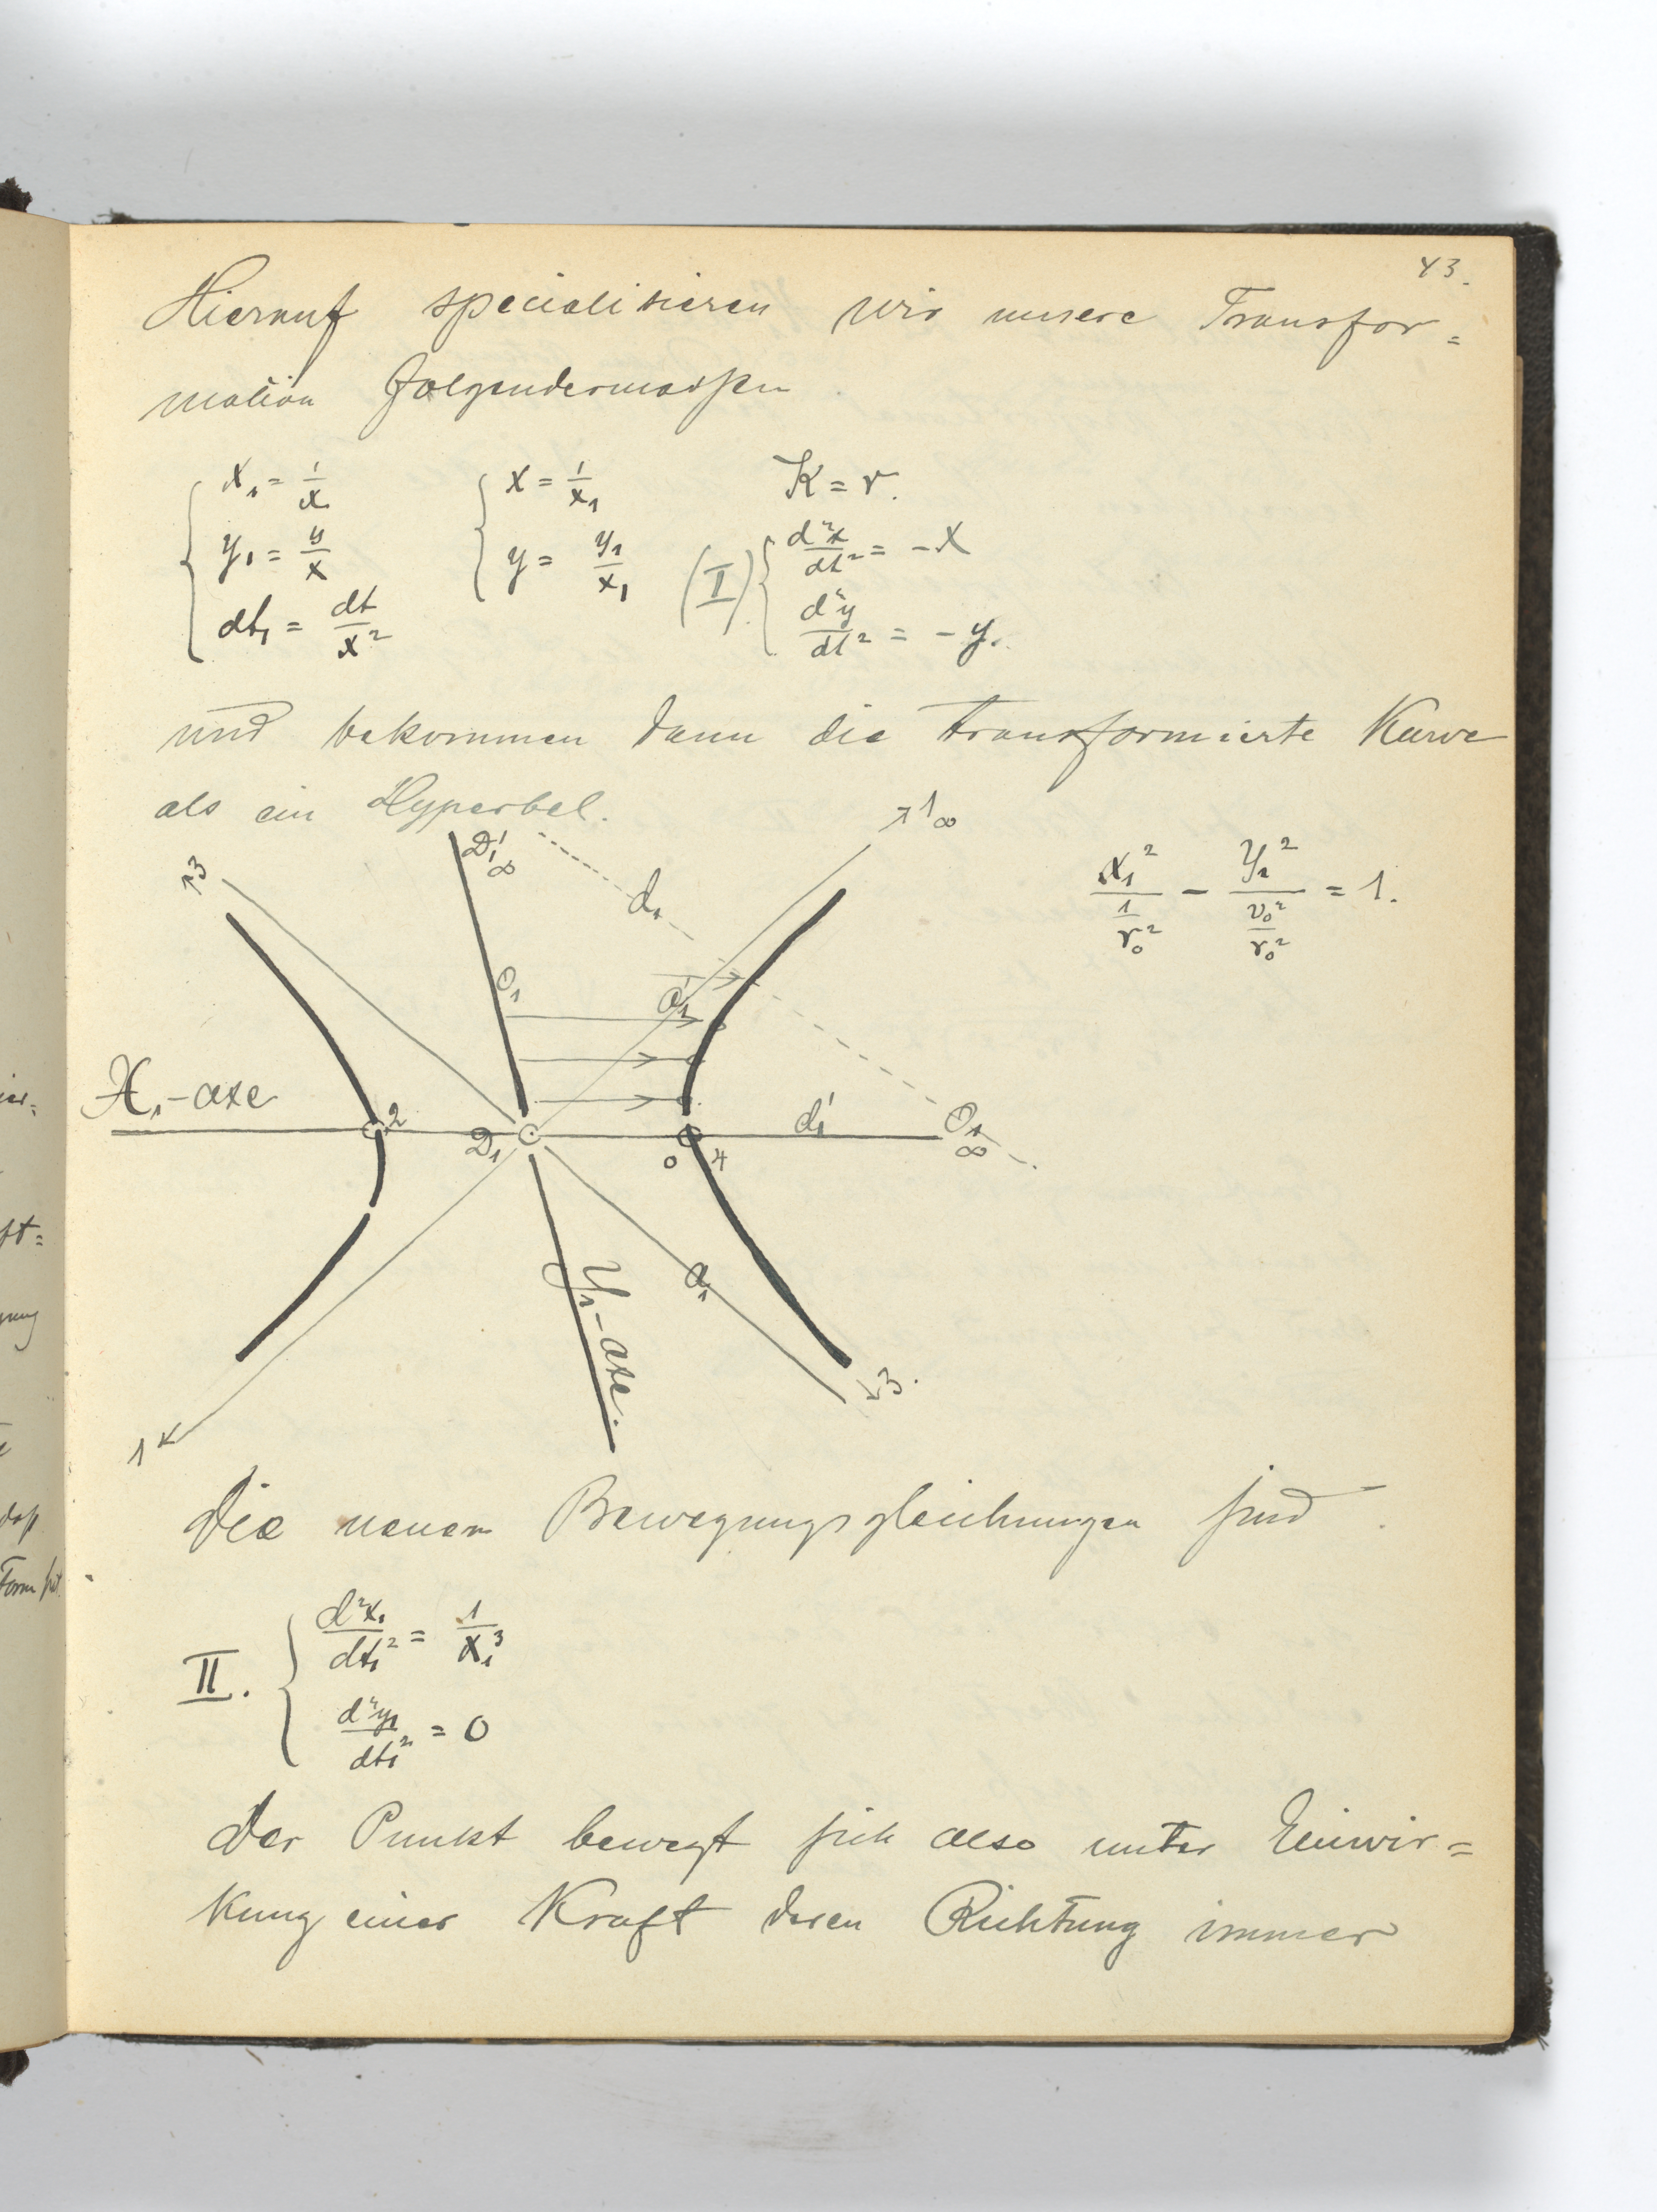 43.
Hierauf specialisieren wir unsere Transfor=
mation folgendermassen
x₁ = 1/x   x = 1/x₁   K = r.
y₁ = y/x   y = y₁/x₁   (I) d²x/dt² = -x
dt₁ = dt/x²   d²y/dt² = -y.
und bekommen dann die transformierte Kurve
als ein Hyperbel.
x₁²/(1/r₀²) - y₁²/(v₀²/r₀²) = 1.
↗1∞
3
D₁'∞
d₁
O₁
X₁-axe
2
D₁
0
4
d₁'
O₁∞
a₁
Y₁-axe.
3.
1
Die neuen Bewegungsgleichungen sind
II. d²x₁/dt₁² = 1/x₁³
d²y₁/dt₁² = 0
Der Punkt bewegt sich also unter Einwir=
kung einer Kraft deren Richtung immer